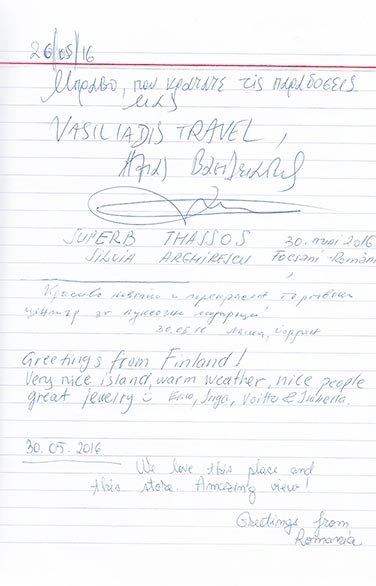 26/05/16
Μπράβο, που κρατάτε τις παραδόσεις
μας
VASILIADIS TRAVEL,
Ηλίας Βασιλειάδης
SUPERB THASSOS 30.mai 2016
SILVIA ARGHIRESCU Focsani-România
Красиво място и прекрасен търговски
център за луксозни
30.05.16
Greetings from Finland!
Very nice island, warm weather, nice people
great jewelry Voitto & Isabella.
30.05.2016
We love this place and
this store. Amazing view!
Greetings from
Romania